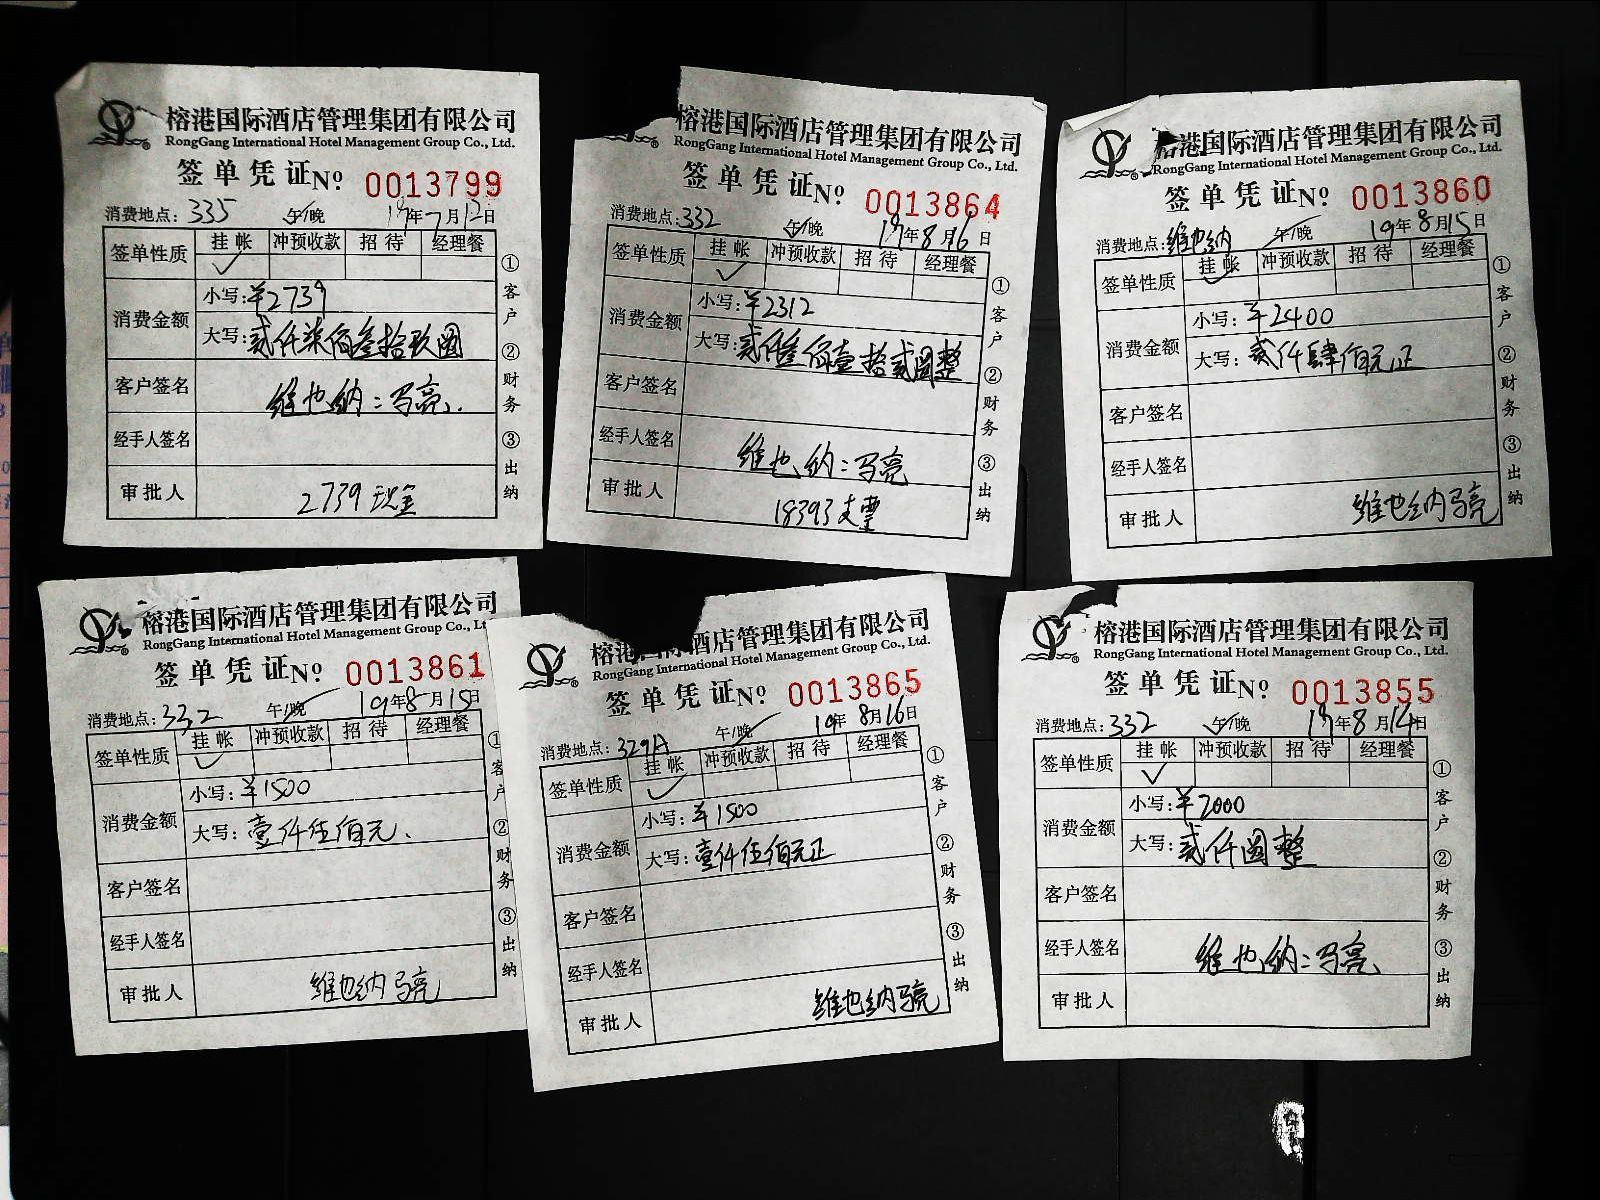 榕港国际酒店管理集团有限公司
RongGang International Hotel Management Group Co., Ltd.
签单凭证 No 0013799
消费地点: 335 午/晚 19年7月12日
签单性质 挂帐 冲预收款 招待 经理餐
✓
消费金额 小写: ¥2739
大写: 贰仟柒佰叁拾玖圆
客户签名 维也纳:马亮
经手人签名
审批人 2739 现金
①客户 ②财务 ③出纳
榕港国际酒店管理集团有限公司
RongGang International Hotel Management Group Co., Ltd.
签单凭证 No 0013864
消费地点: 332 午/晚 19年8月16日
签单性质 挂帐 冲预收款 招待 经理餐
✓
消费金额 小写: ¥2312
大写: 贰仟叁佰壹拾贰圆整
客户签名
经手人签名 维也纳:马亮
审批人 18393支票
①客户 ②财务 ③出纳
榕港国际酒店管理集团有限公司
RongGang International Hotel Management Group Co., Ltd.
签单凭证 No 0013860
消费地点: 维也纳 午/晚 19年8月15日
签单性质 挂帐 冲预收款 招待 经理餐
✓
消费金额 小写: ¥2400
大写: 贰仟肆佰元正
客户签名
经手人签名
审批人 维也纳马亮
①客户 ②财务 ③出纳
榕港国际酒店管理集团有限公司
RongGang International Hotel Management Group Co., Lt
签单凭证 No 0013861
消费地点: 332 午/晚 19年8月15日
签单性质 挂帐 冲预收款 招待 经理餐
✓
消费金额 小写: ¥1500
大写: 壹仟伍佰元.
客户签名
经手人签名
审批人 维也纳马亮
①客户 ②财务 ③出纳
榕港国际酒店管理集团有限公司
RongGang International Hotel Management Group Co., Ltd.
签单凭证 No 0013865
消费地点: 329A 午/晚 19年8月16日
签单性质 挂帐 冲预收款 招待 经理餐
✓
消费金额 小写: ¥1500
大写: 壹仟伍佰元正
客户签名
经手人签名
审批人 维也纳马亮
①客户 ②财务 ③出纳
榕港国际酒店管理集团有限公司
RongGang International Hotel Management Group Co., Ltd.
签单凭证 No 0013855
消费地点: 332 午/晚 19年8月14日
签单性质 挂帐 冲预收款 招待 经理餐
✓
消费金额 小写: ¥2000
大写: 贰仟圆整
客户签名
经手人签名 维也纳:马亮
审批人
①客户 ②财务 ③出纳